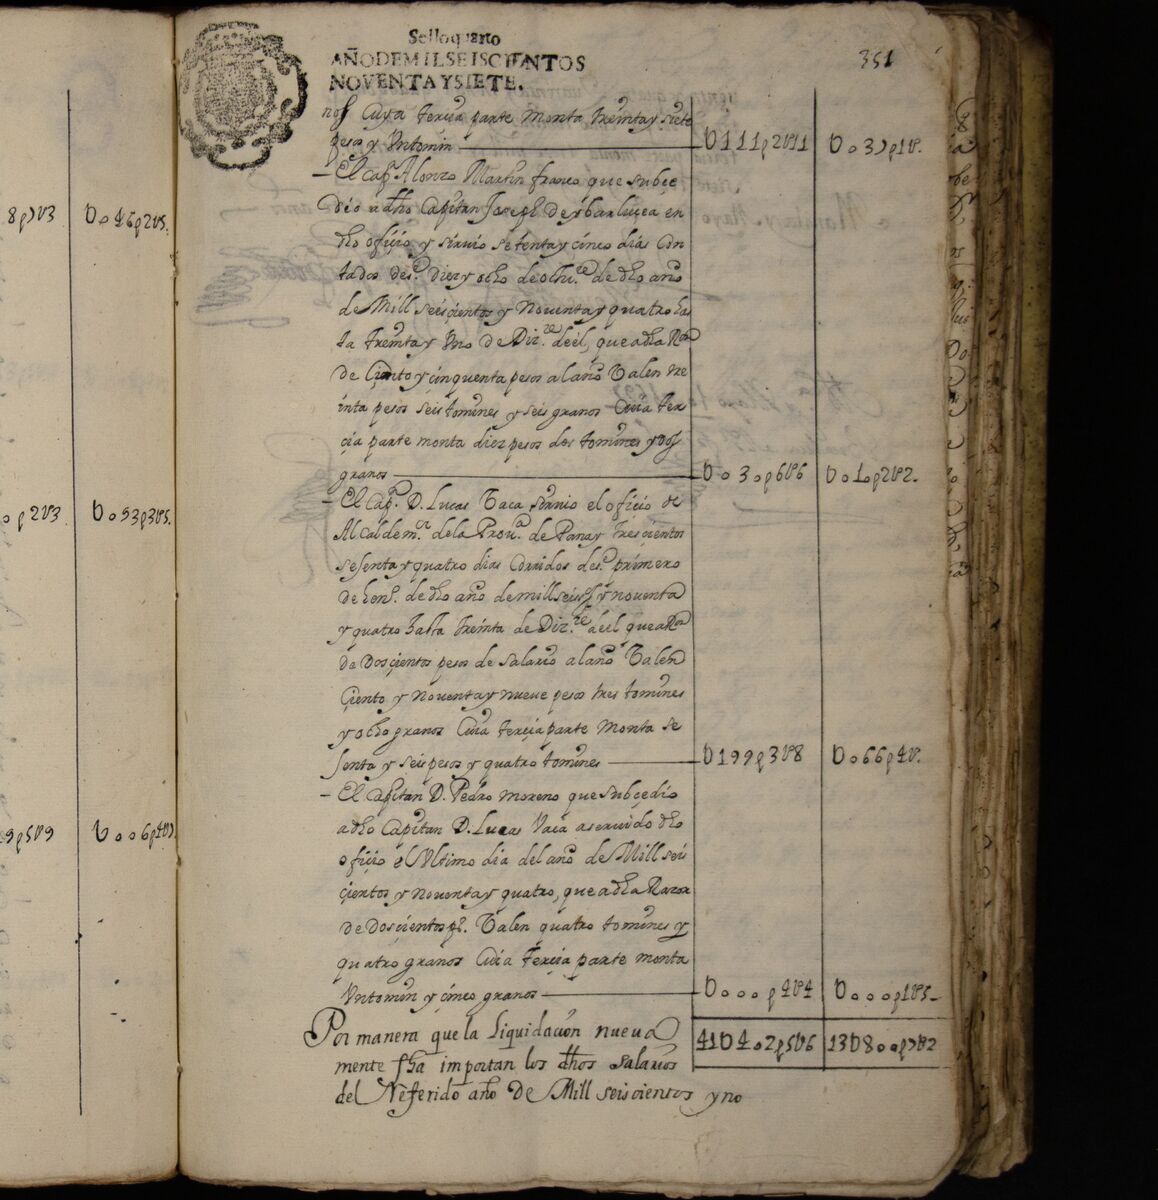 8p7U3 U o 46p2U5.
o p2U3. U o 93p3U5.
29p5U9 U o o 6p4U7
Sello quarto
AÑO DE MIL SEISCIENTOS
NOVENTA Y SIETE.
351
nos Cuya Terçia parte monta treinta y siete
pesos y Un tomin U111p2U11 U o 37p1U.
– El Capn. Alonzo Martin franco que subçe
Dio a dho Capitan Joseph de ybarluçea en
dho ofiçio y siruio setenta y çinco dias Con
tados des.e Diez y ocho de octu.re de dho año
de Mill seisçientos y Noventa y quatro has
ta treinta y Uno de Diz.re de el, que a dha Ron
de Ciento y çinquenta pesos al año Valen tre
inta pesos seis tomines y seis granos Cuia Ter
çia parte monta diez pesos dos tomines y dos
granos U o 3 o p6U6 U o 1o p2U2.
– El Capn. D. Lucas Vaca siruio el ofiçio de
Alcalde m.or de la Prou.a de Panay Tresçientos
sesenta y quatro dias Corridos des.e primero
de hen.o de dho año de mill seisos y noventa
y quatro hasta treinta de Diz.re de el que a Ron
de Dosçientos pesos de salario al año Valen
Çiento y Noventa y nueve pesos tres tomines
y ocho granos Cuia Terçia parte Monta se
senta y seis pesos y quatro tomines U199p3U8 U o 66p4U.
– El Capitan D. Pedro Moreno que subçedio
a dho Capitan D. Lucas Vaca a seruido dho
ofiçio el Vltimo dia del año de Mill seis
çientos y Noventa y quatro, que a dha Razon
de Dosçientos ps. Valen quatro tomines y
quatro granos Cuia Terçia parte monta
Un tomin y çinco granos U o o o p4U4 U o o o p1U5–
Por manera que la Liquidaçion nueua 41U4 o 2p5U6 13U8 o o p7U2
mente fha importan los dhos salarios
del Referido año De Mill seiscientos y no